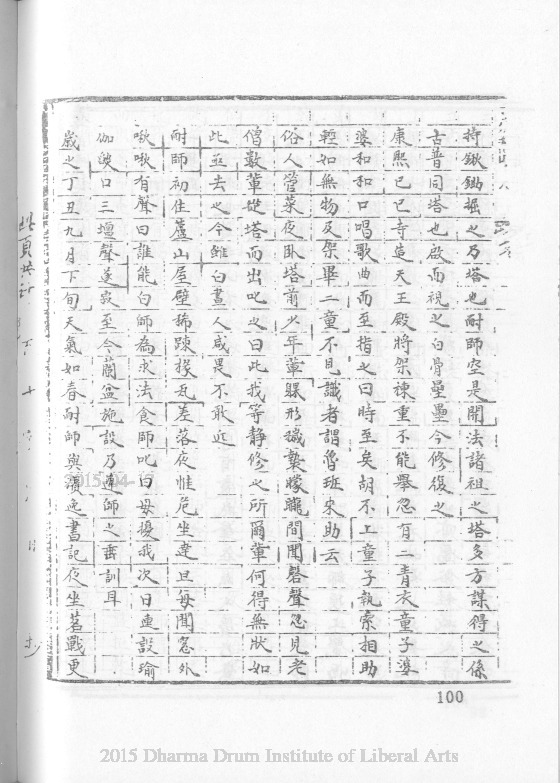 持鍬鋤掘之乃塔也耐師空是開法諸祖之塔多方謀得之係
古普同塔也啟而視之白骨壘壘今修復之
康熙己巳寺造天王殿將架棟重不能舉忽有二青衣童子婆
婆和和口唱歌曲而至指之曰時至矣胡不工童子執索相助
輕如無物及架畢二童不見識者謂魯班來助云
俗人營菜夜臥塔前少年輩躶形穢褻朦朧間聞磬聲忽見老
僧數輩從塔而出叱之曰此我等靜修之所爾輩何得無狀如
此亟去之今雖白晝人咸畏不敢近
耐師初住蘆山屋壁稀踈椽瓦差落夜惟危坐達旦每聞窓外
啾啾有聲曰誰能白師為求法食師叱曰毋擾我次日連設瑜
伽燄口三壇聲遂寂至今蘭盆施設乃連師之垂訓耳
歲之丁丑九月下旬天氣如春耐師與 逸書記夜坐茗戰更
100
2015-04-
2015 Dharma Drum Institute of Liberal Arts